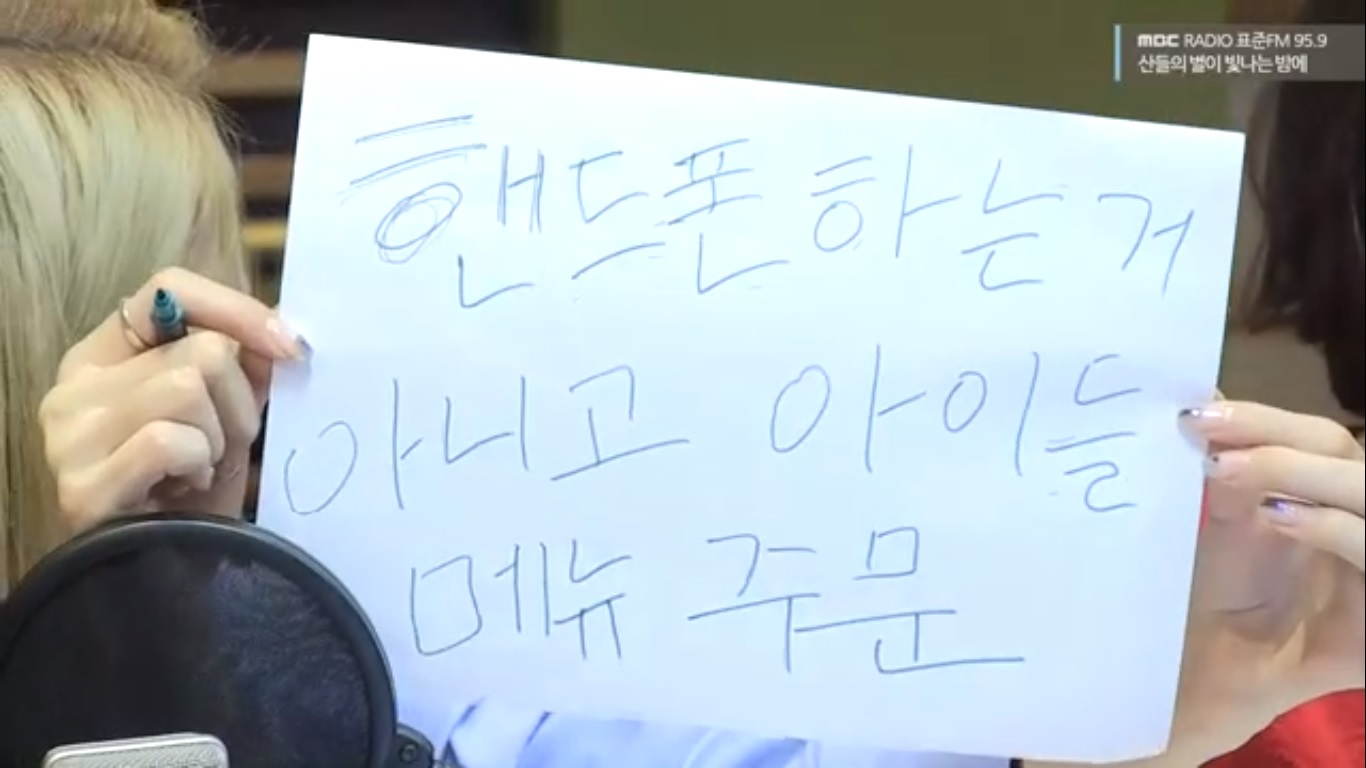 MBC RADIO 표준FM 95.9
산들의 별이 빛나는 밤에
핸드폰 하는 거
아니고 아이들
메뉴 주문